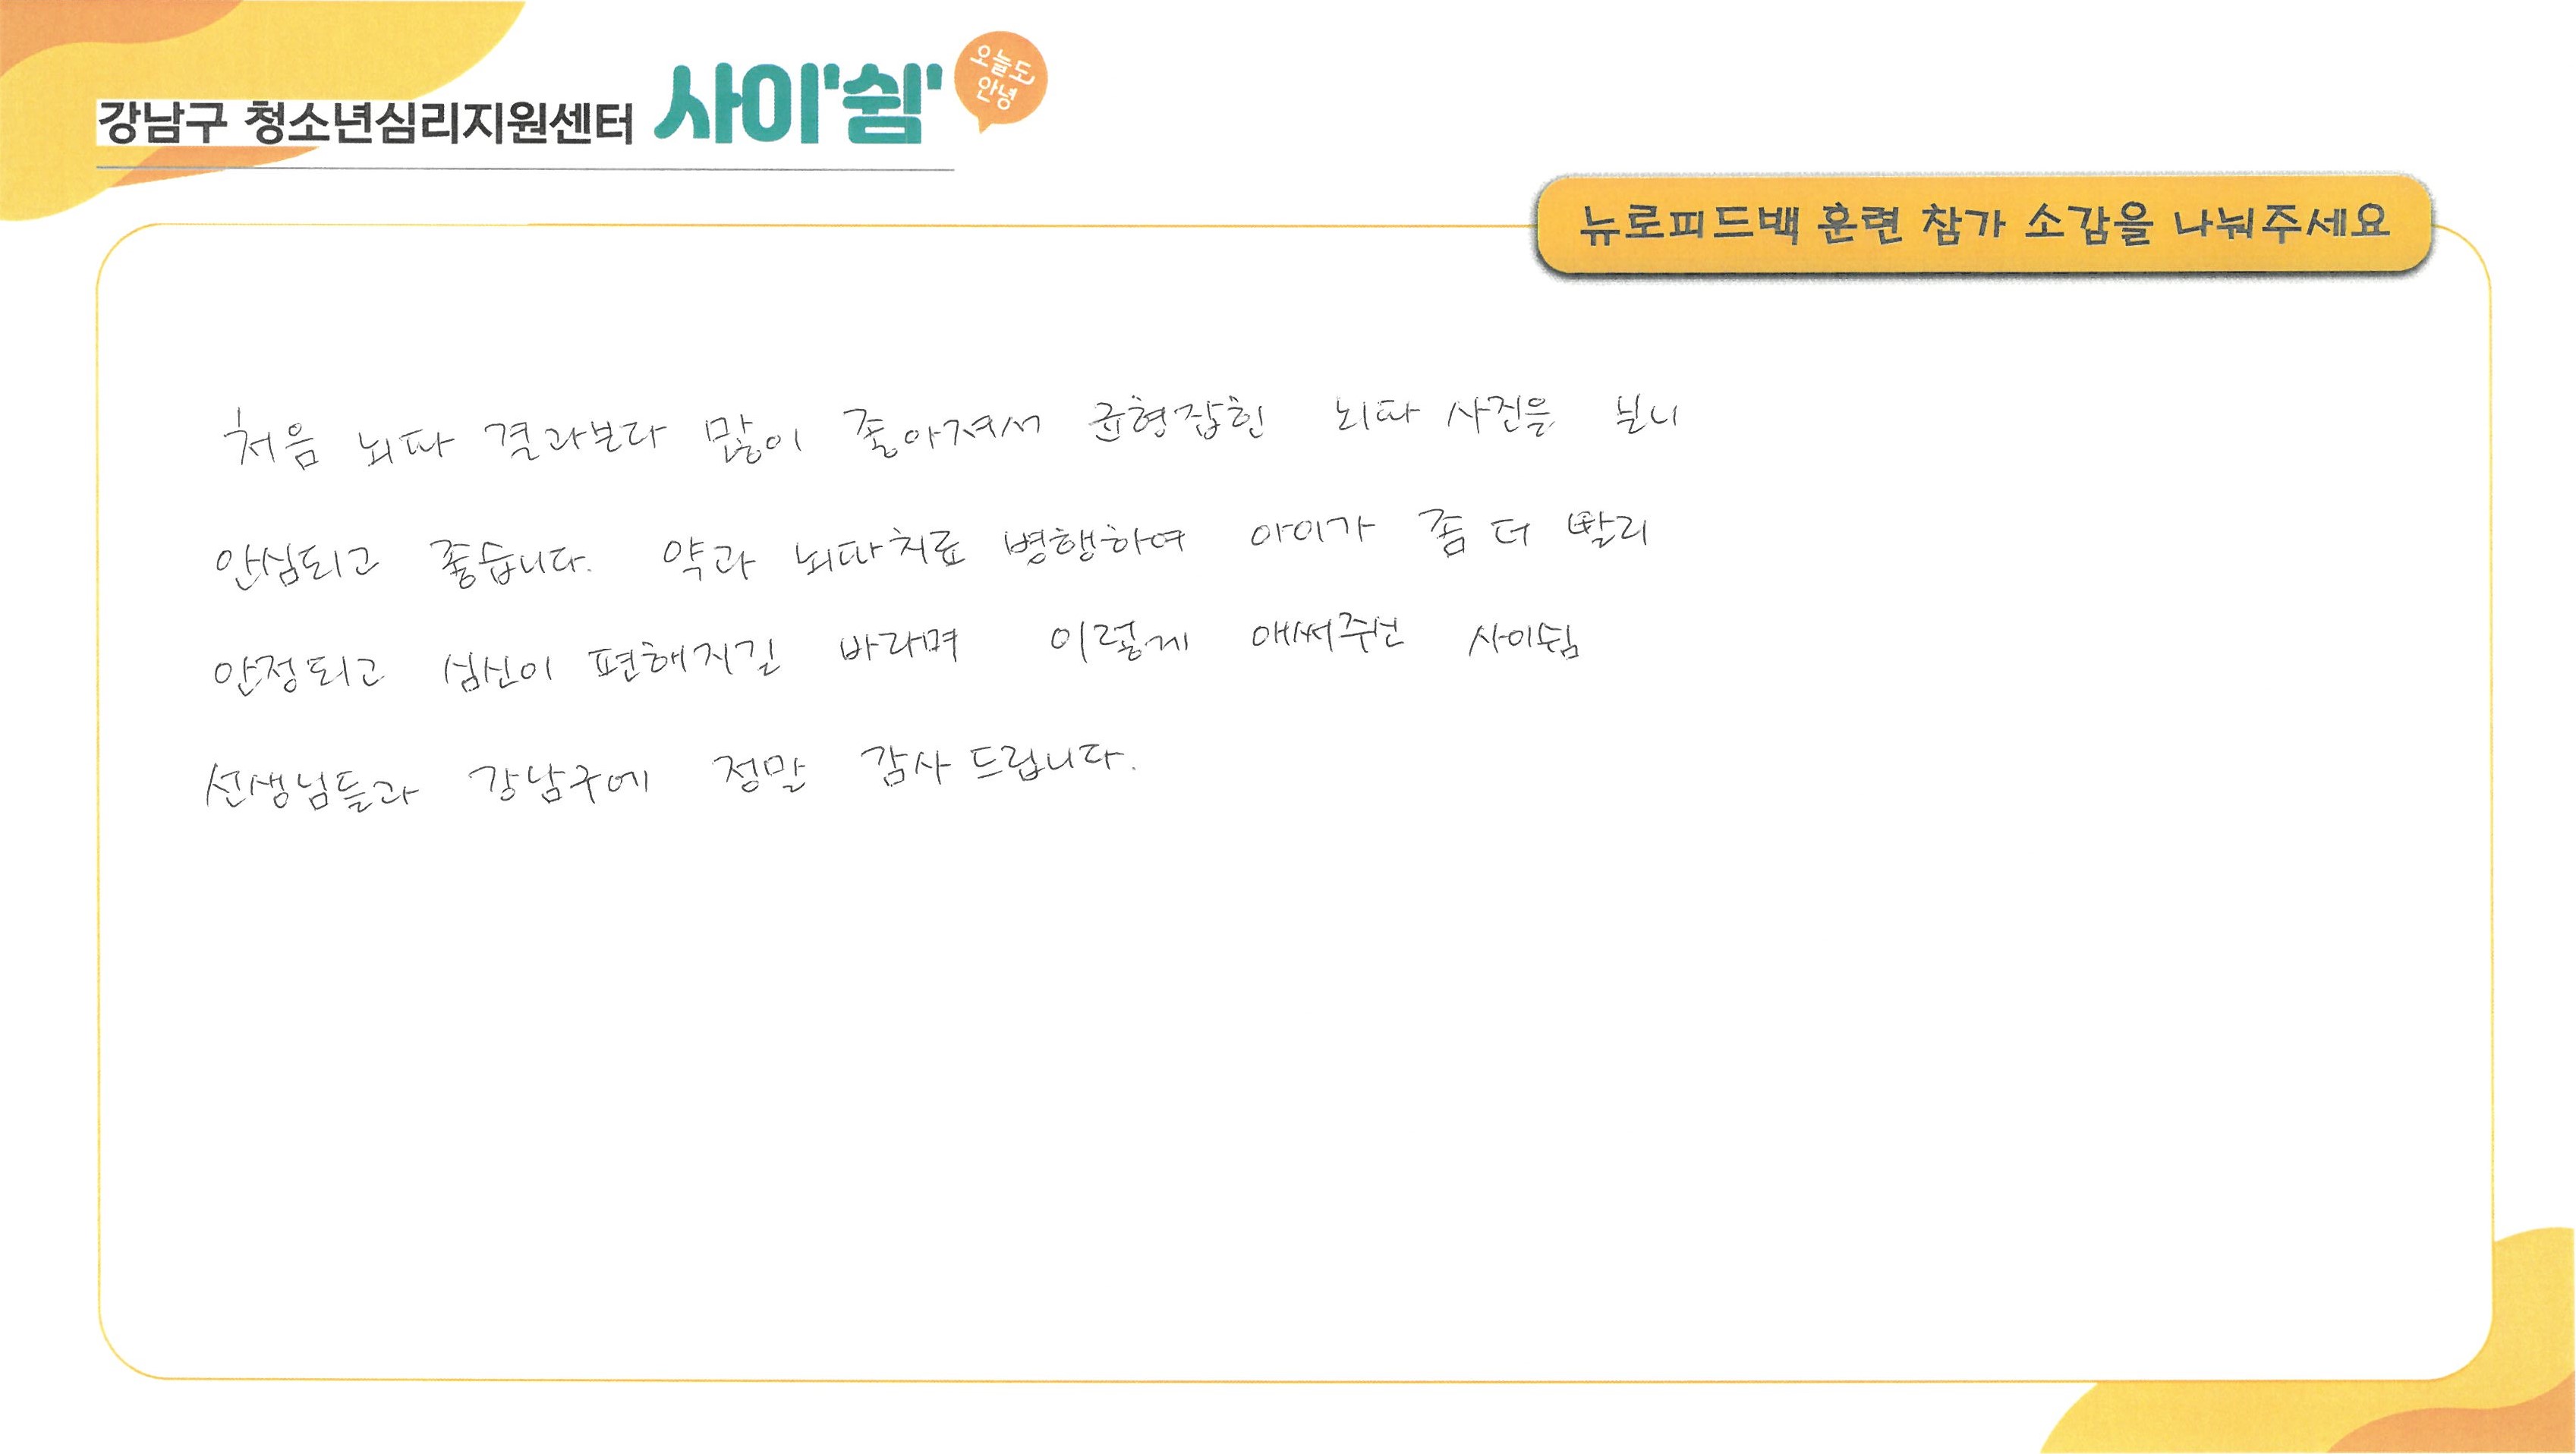 오늘도
안녕
강남구 청소년심리지원센터 사이'쉼'
뉴로피드백 훈련 참가 소감을 나눠주세요
처음 뇌파 결과보다 많이 좋아져서 균형잡힌 뇌파 사진을 보니
안심되고 좋습니다. 약과 뇌파치료 병행하여 아이가 좀 더 빨리
안정되고 심신이 편해지길 바라며 이렇게 애써주신 사이쉼
선생님들과 강남구에 정말 감사 드립니다.